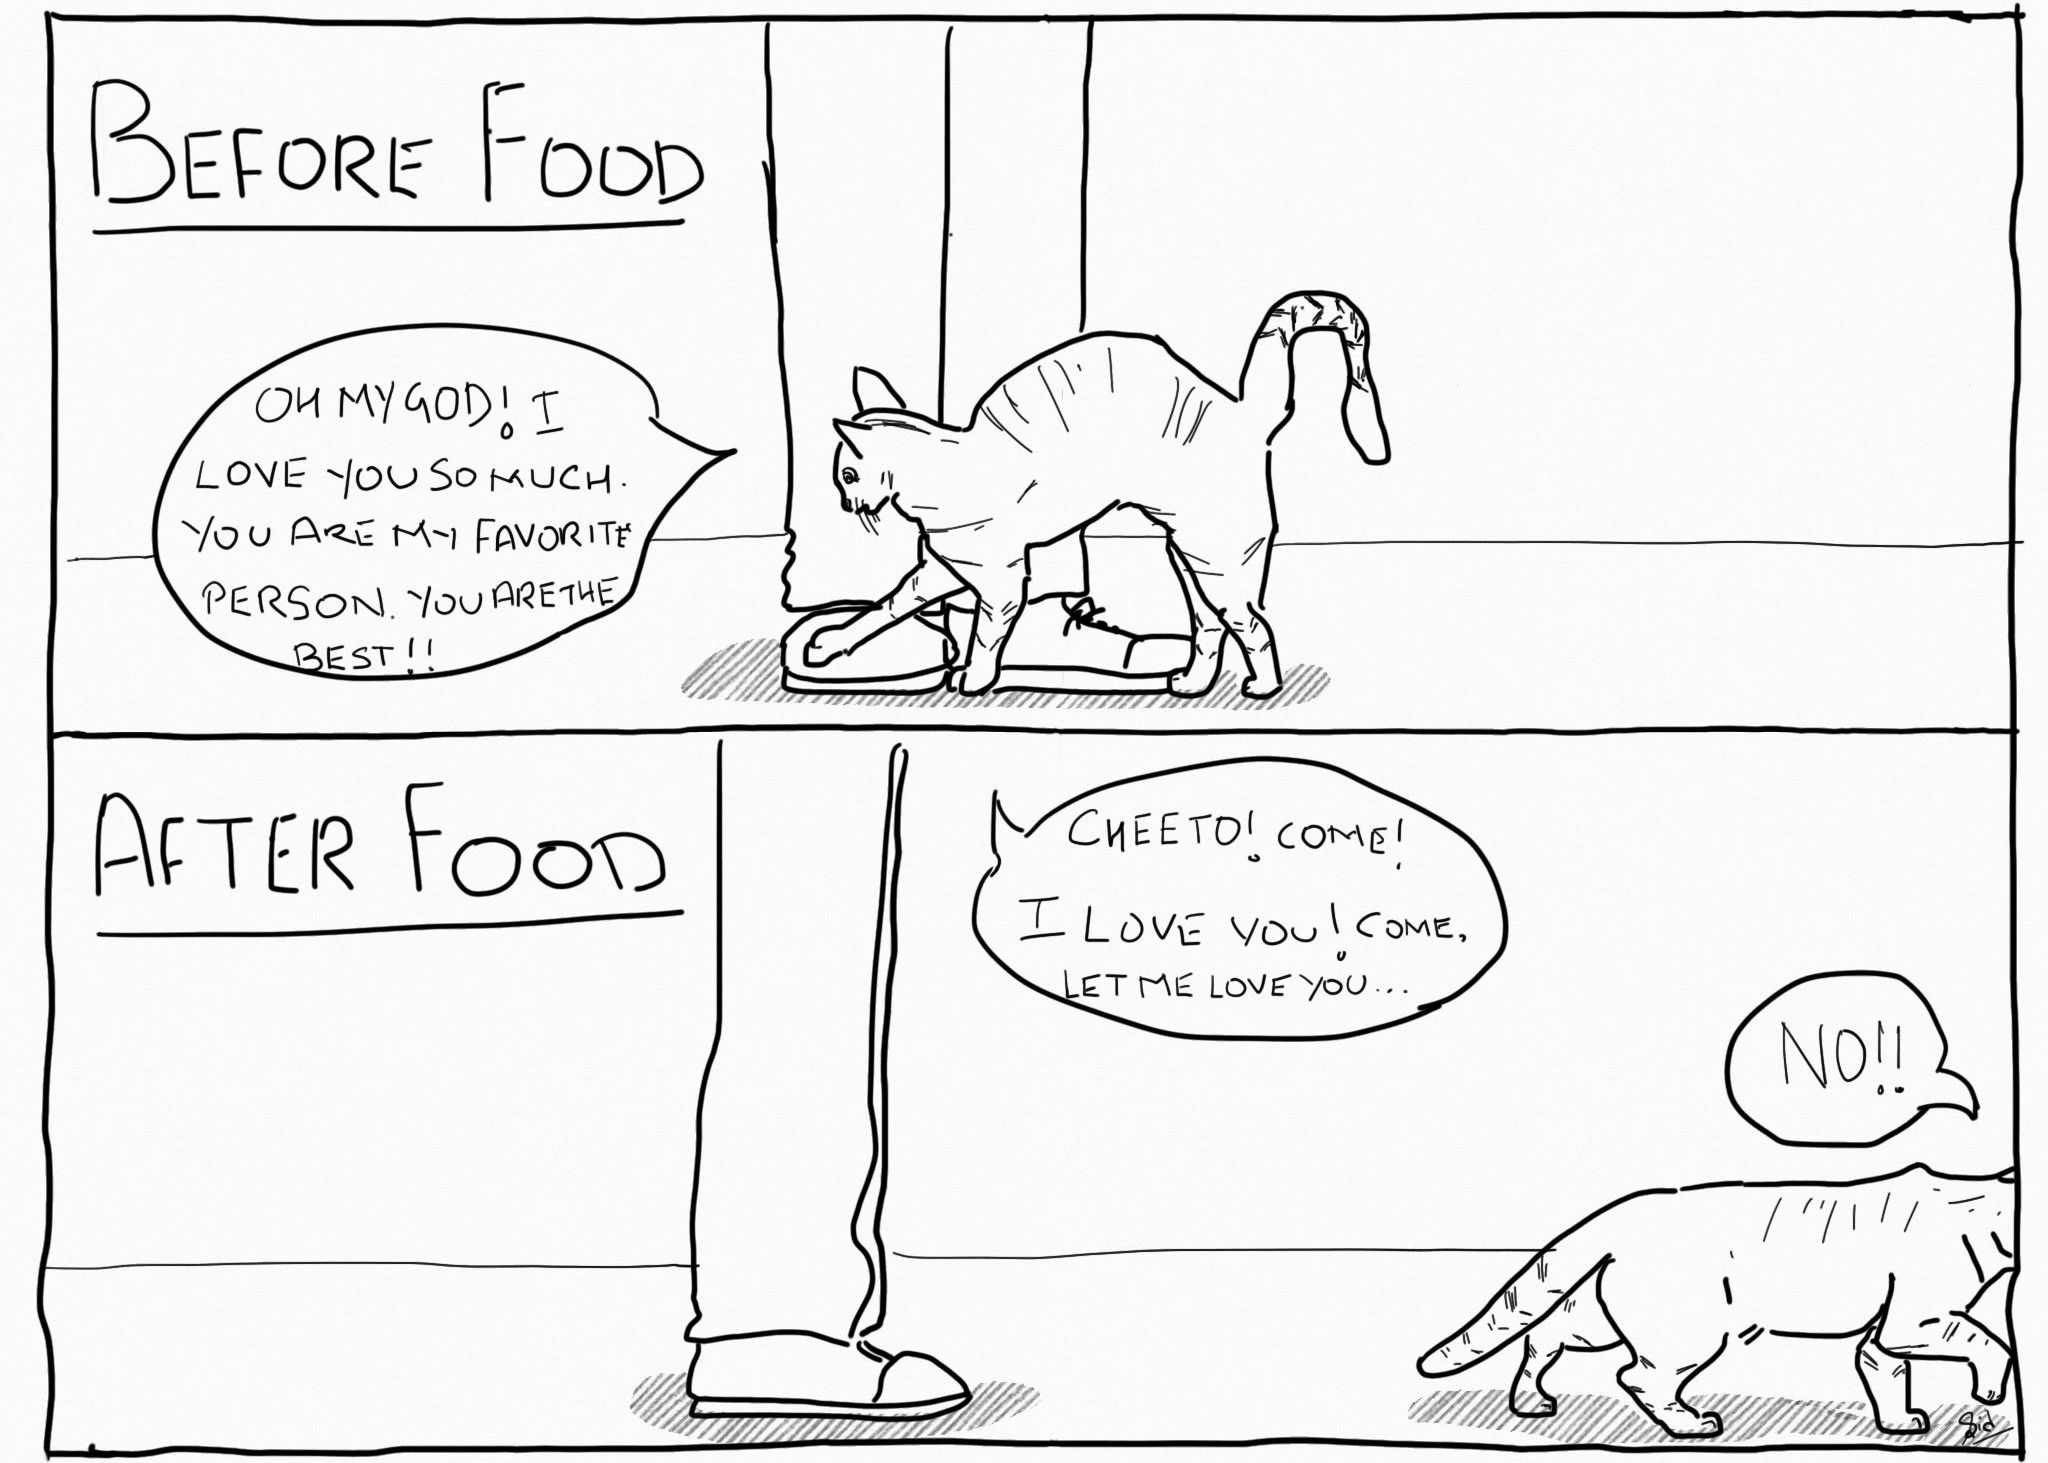 BEFORE FOOD
OH MY GOD! I
LOVE YOU SO MUCH.
YOU ARE MY FAVORITE
PERSON. YOU ARE THE
BEST!!
AFTER FOOD
CHEETO! COME!
I LOVE YOU! COME,
LET ME LOVE YOU...
NO!!
Sid